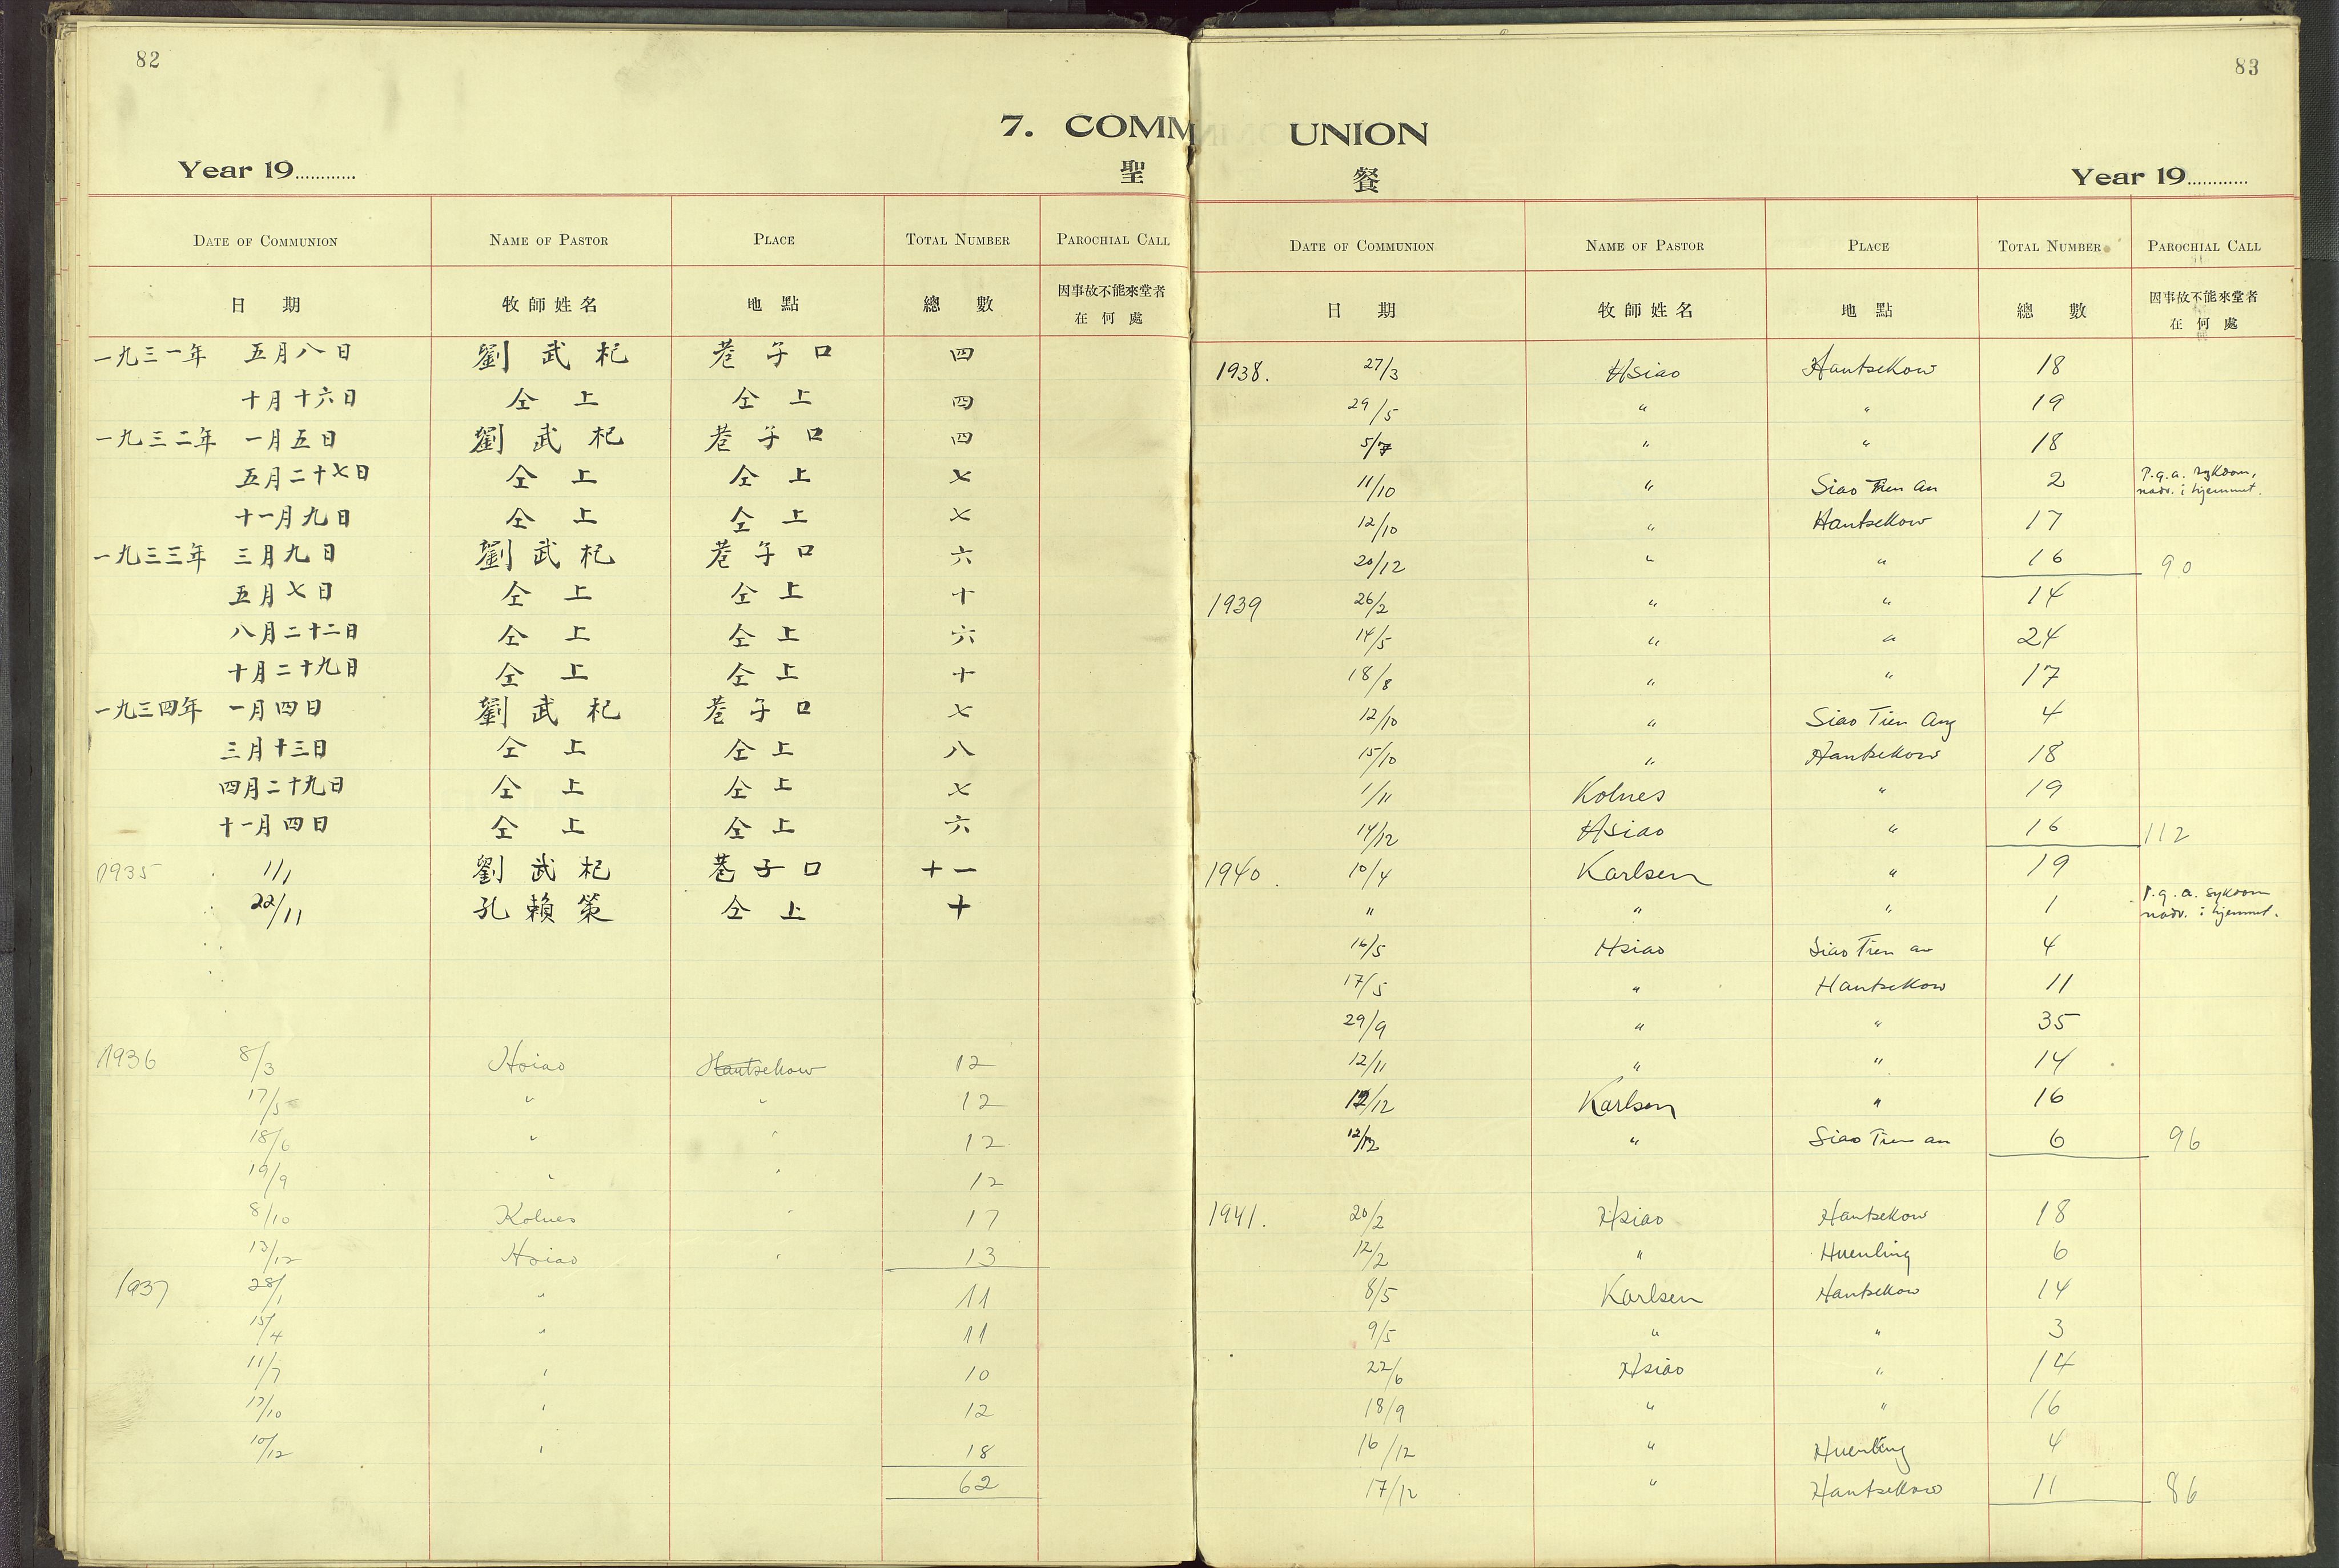 82
7. COMM
Year 19............
聖
DATE OF COMMUNION NAME OF PASTOR PLACE TOTAL NUMBER PAROCHIAL CALL
日期 牧師姓名 地點 總數 因事故不能來堂者
在何處
一九三一年 五月八日 劉武杞 巷子口 四
十月十六日 仝上 仝上 四
一九三二年 一月五日 劉武杞 巷子口 四
五月二十七日 仝上 仝上 七
十一月九日 仝上 仝上 七
一九三三年 三月九日 劉武杞 巷子口 六
五月七日 仝上 仝上 十
八月二十二日 仝上 仝上 六
十月二十九日 仝上 仝上 十
一九三四年 一月四日 劉武杞 巷子口 七
三月十三日 仝上 仝上 八
四月二十九日 仝上 仝上 七
十一月四日 仝上 仝上 六
1935 1/1 劉武杞 巷子口 十一
22/11 孔賴策 仝上 十
1936 8/3 Hsiao Hantsekow 12
17/5 " " 12
18/6 " " 12
19/9 " " 12
8/10 Kolnes " 17
13/12 Hsiao " 13
1937 28/1 " 11
15/4 " 11
11/7 " 10
17/10 " 12
10/12 " 18
62
83
UNION
餐
Year 19............
DATE OF COMMUNION NAME OF PASTOR PLACE TOTAL NUMBER PAROCHIAL CALL
日期 牧師姓名 地點 總數 因事故不能來堂者
在何處
1938. 27/3 Hsiao Hantsekow 18
29/5 " " 19
5/7 " " 18
11/10 " Siao Tien An 2 P.g.a. sykdom,
nadv. i hjemmet.
12/10 " Hantsekow 17
20/12 " " 16 90
1939 26/2 " " 14
14/5 " " 24
18/8 " " 17
12/10 " Siao Tien Ang 4
15/10 " Hantsekow 18
1/11 Kolnes " 19
14/12 Hsiao " 16 112
1940. 10/4 Karlsen " 19
" " " 1 P.g.a. sykdom
nadv. i hjemmet.
16/5 Hsiao Siao Tien an 4
17/5 " Hantsekow 11
29/9 " " 35
12/11 " " 14
12/12 Karlsen " 16
12/12 " Siao Tien an 6 96
1941. 20/2 Hsiao Hantsekow 18
12/2 " Huenling 6
8/5 Karlsen Hantsekow 14
9/5 " " 3
22/6 Hsiao " 14
18/9 " " 16
16/12 " Huenling 4
17/12 " Hantsekow 11 86